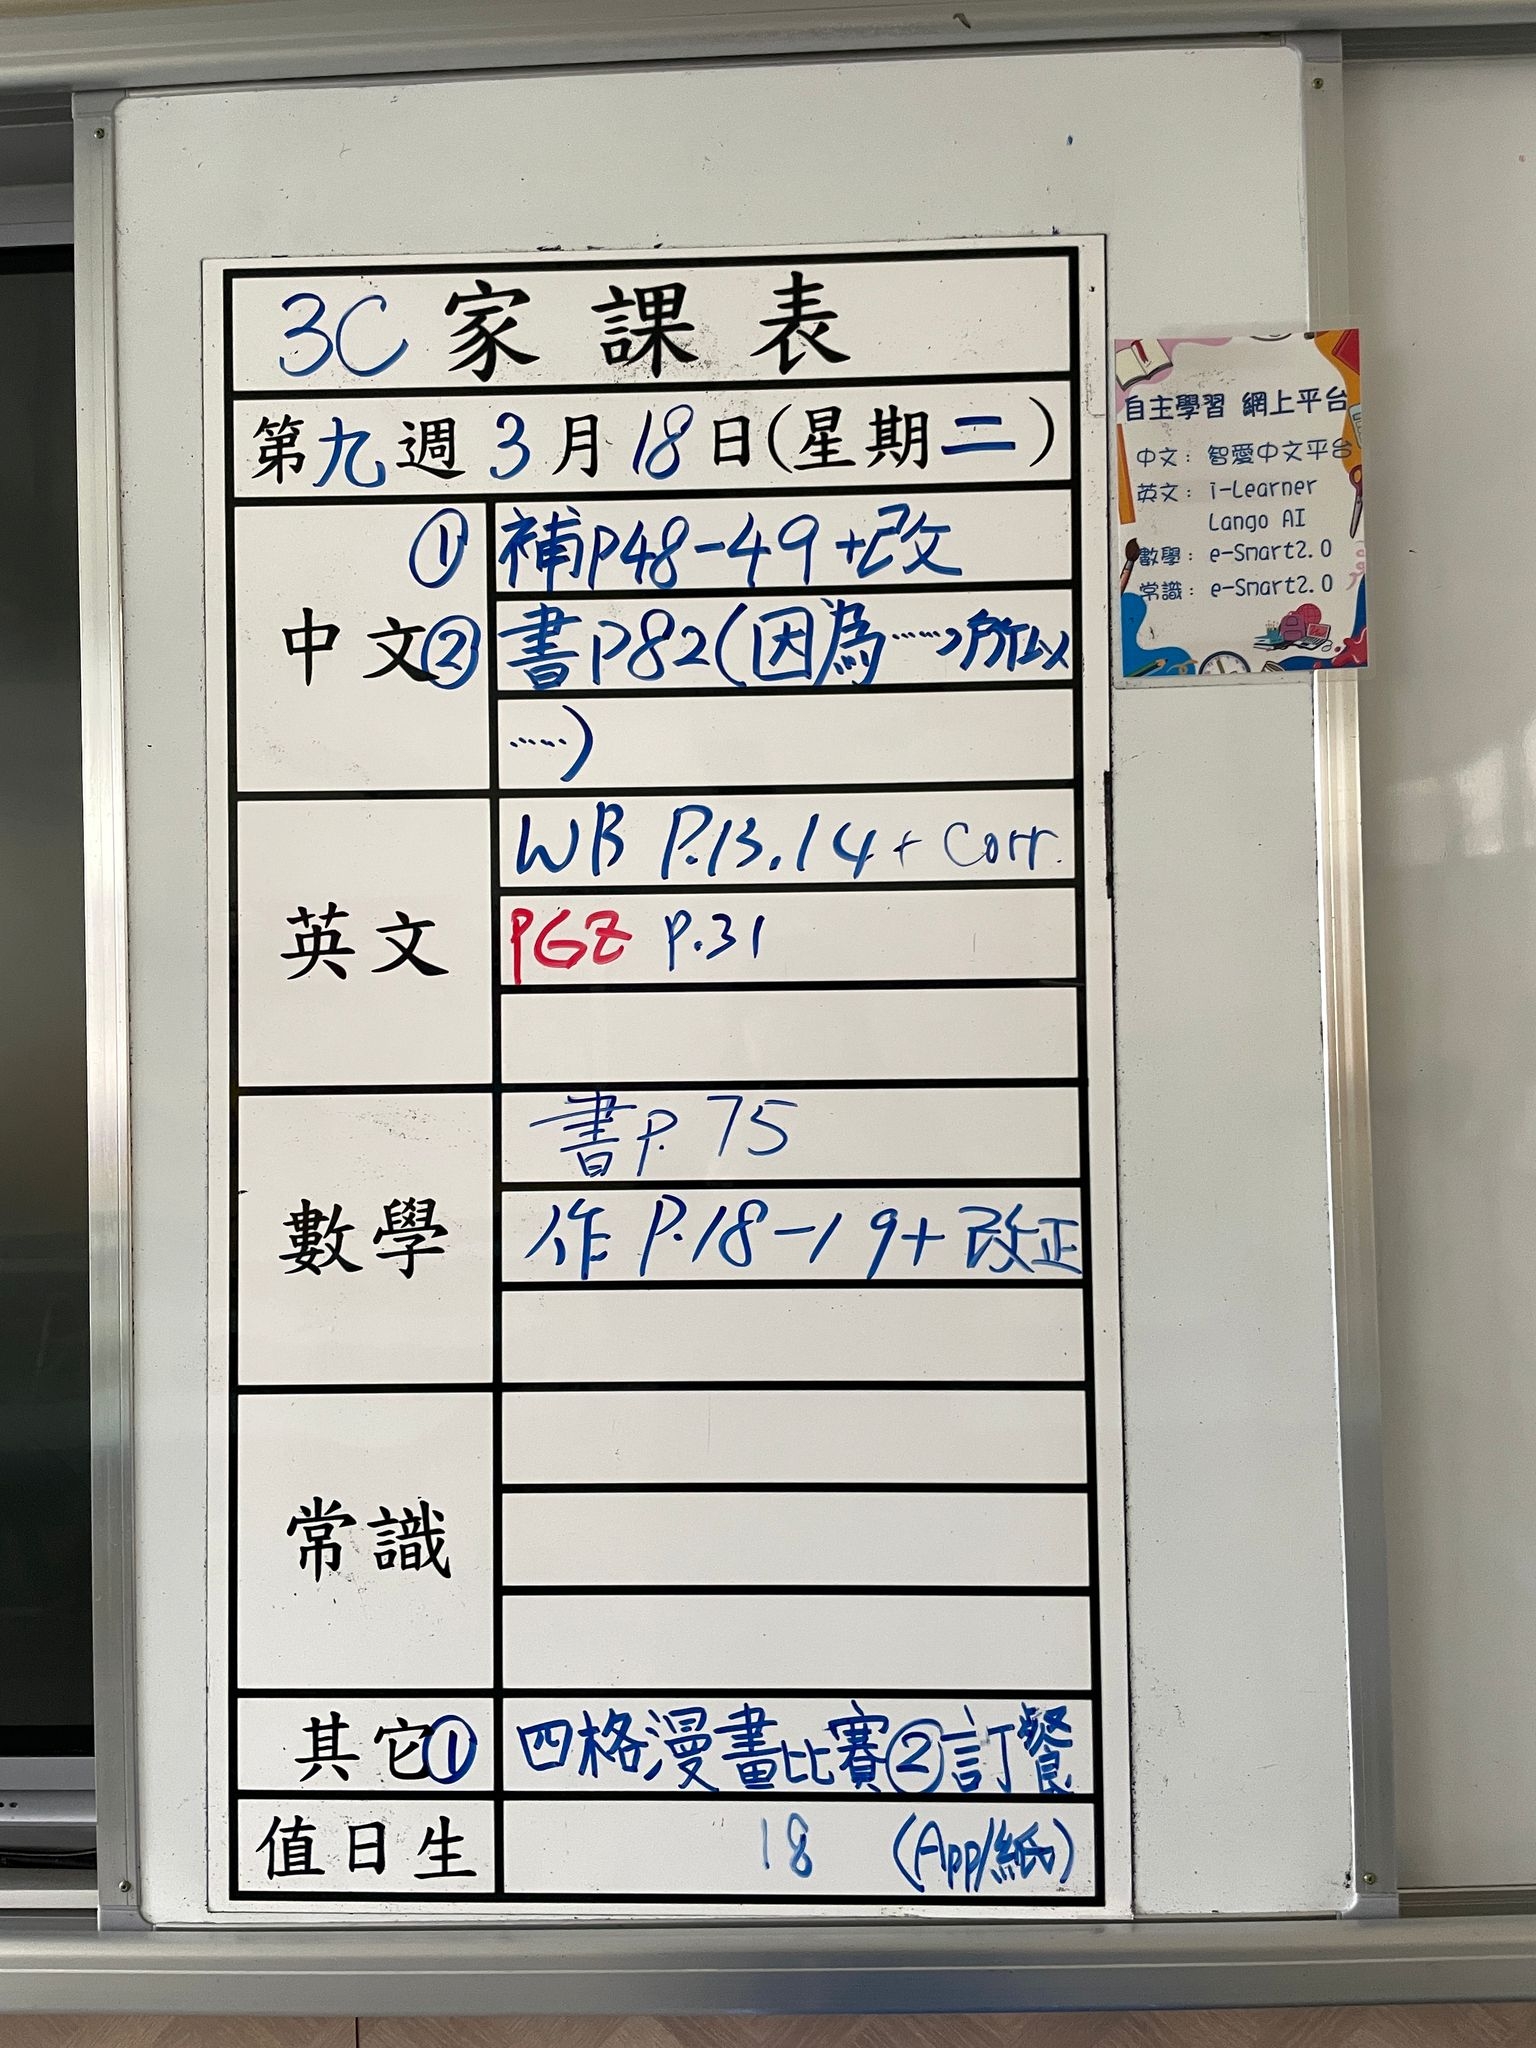 3C 家課表
第九週 3月18日(星期二)
中文
① 補P48-49+改
② 書P82(因為……,所以
……)
英文
WB P.13.14 + Corr.
PGZ P.31
數學
書P. 75
作 P.18-19+改正
常識
其它 ① 四格漫畫比賽 ② 訂餐
(App/紙)
值日生 18
自主學習 網上平台
中文: 智愛中文平台
英文: i-Learner
Lango AI
數學: e-Smart2.0
常識: e-Smart2.0